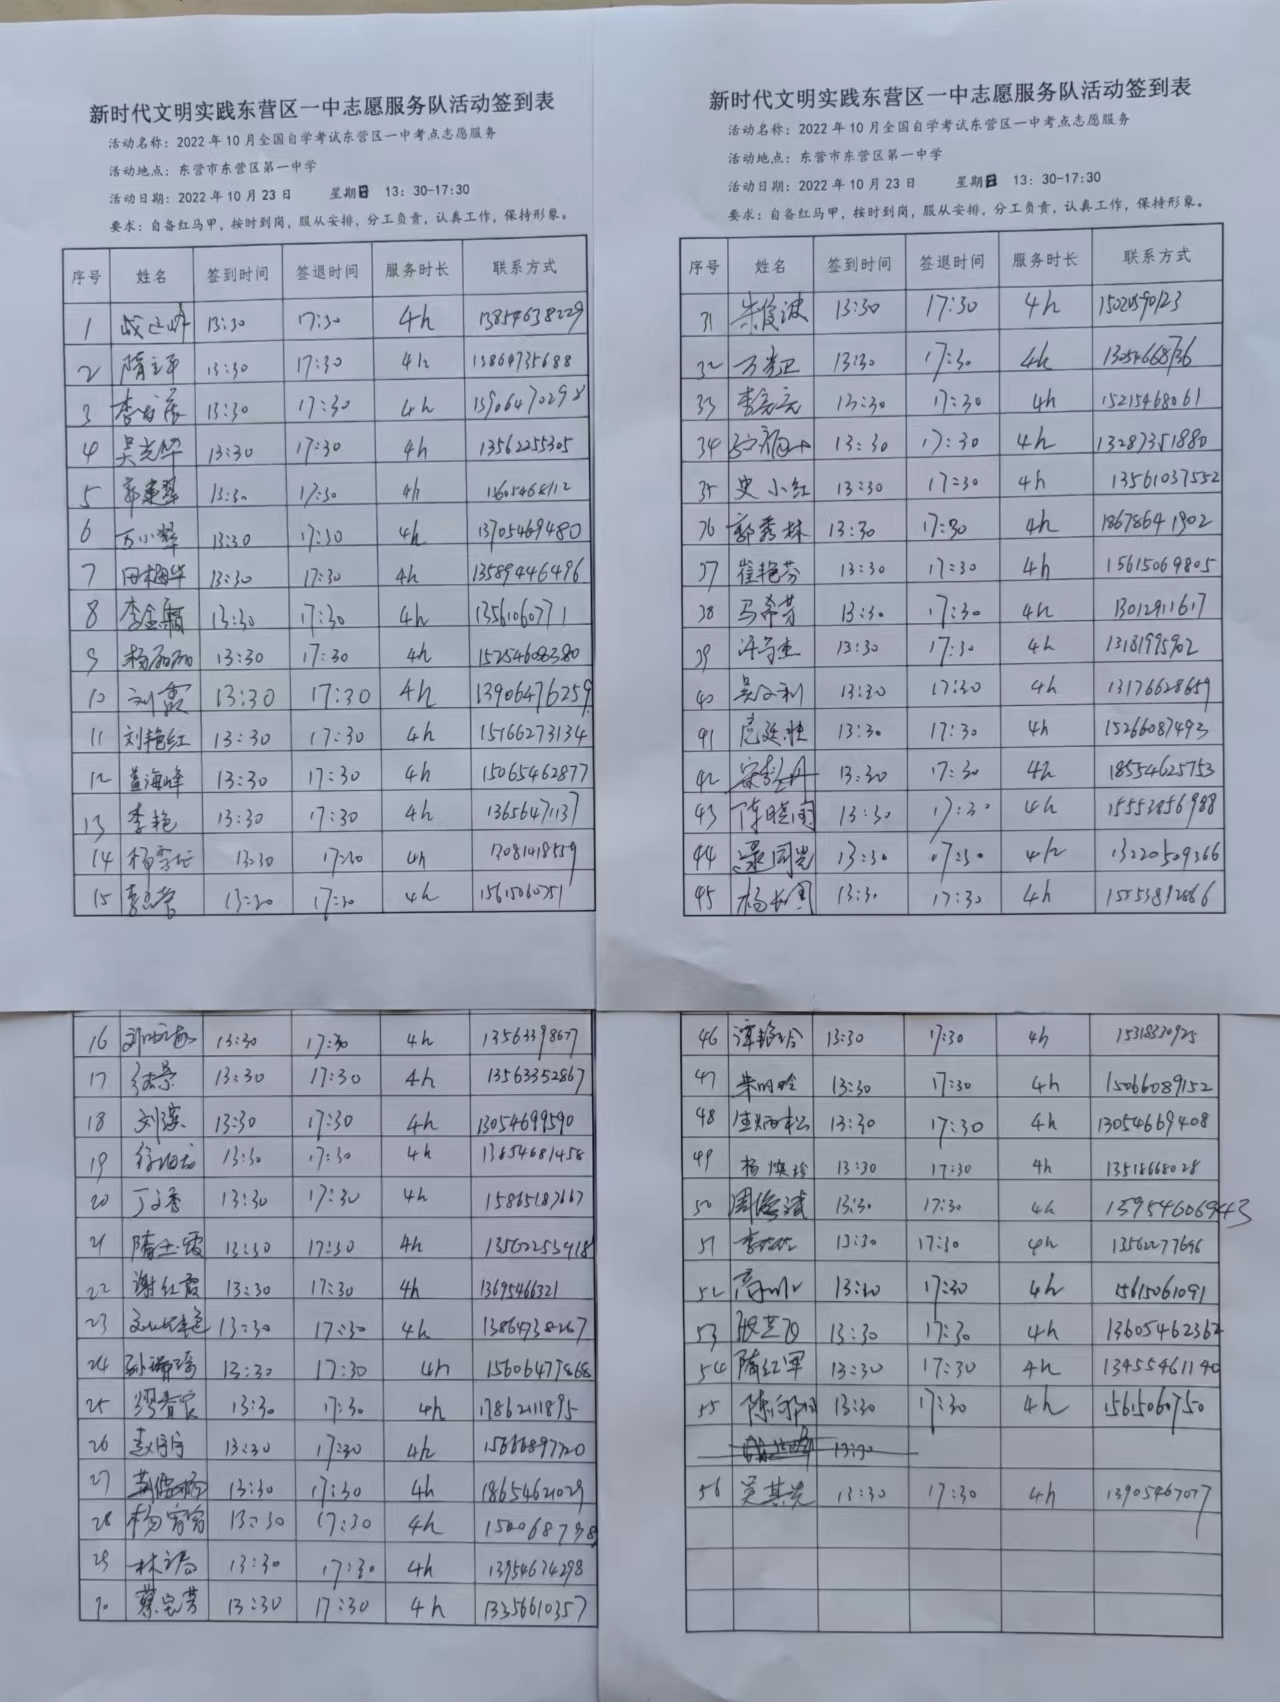 新时代文明实践东营区一中志愿服务队活动签到表
活动名称：2022年10月全国自学考试东营区一中考点志愿服务
活动地点：东营市东营区第一中学
活动日期：2022年10月23日 星期日 13：30-17:30
要求：自备红马甲，按时到岗，服从安排，分工负责，认真工作，保持形象。
序号 姓名 签到时间 签退时间 服务时长 联系方式
1 13:30 17:30 4h 13854638229
2 隋立平 13:30 17:30 4h 13864735688
3 13:30 17:30 4h 13906470298
4 吴光华 13:30 17:30 4h 13562255305
5 郭建翠 13:30 17:30 4h
6 万小翠 13:30 17:30 4h 13705469480
7 田梅华 13:30 17:30 4h 13589446496
8 李金霜 13:30 17:30 4h 13561060771
9 杨丽丽 13:30 17:30 4h 15254608380
10 刘霞 13:30 17:30 4h 13906476259
11 刘艳红 13:30 17:30 4h 15166273134
12 盖海峰 13:30 17:30 4h 15065462877
13 李艳 13:30 17:30 4h 13656471137
14 13:30 17:30 4h 13081418559
15 13:30 17:30 4h 15615060751
16 13:30 17:30 4h 13563398677
17 徐景 13:30 17:30 4h 13563352867
18 刘滨 13:30 17:30 4h 13054699590
19 13:30 17:30 4h 13854681458
20 丁文香 13:30 17:30 4h 15865187667
21 隋玉霞 13:30 17:30 4h 13562253918
22 谢红霞 13:30 17:30 4h 13695466321
23 13:30 17:30 4h 13864738267
24 孙瑞琦 13:30 17:30 4h 15606479868
25 13:30 17:30 4h 17862111895
26 赵宇宁 13:30 17:30 4h 15666897720
27 13:30 17:30 4h 18654621029
28 杨宾宾 13:30 17:30 4h
29 13:30 17:30 4h 13954674298
30 蔡宝芳 13:30 17:30 4h 13356610357
新时代文明实践东营区一中志愿服务队活动签到表
活动名称：2022年10月全国自学考试东营区一中考点志愿服务
活动地点：东营市东营区第一中学
活动日期：2022年10月23日 星期日 13：30-17:30
要求：自备红马甲，按时到岗，服从安排，分工负责，认真工作，保持形象。
序号 姓名 签到时间 签退时间 服务时长 联系方式
31 朱俊波 13:30 17:30 4h
32 万光卫 13:30 17:30 4h 13054668736
33 李亮亮 13:30 17:30 4h 15215468061
34 13:30 17:30 4h 13287351880
35 史小红 13:30 17:30 4h 13561037552
36 郭秀林 13:30 17:30 4h 18678641902
37 崔艳芬 13:30 17:30 4h 15615069805
38 马希芳 13:30 17:30 4h 13012911617
39 13:30 17:30 4h 13181995902
40 吴文利 13:30 17:30 4h 13176628659
41 13:30 17:30 4h 15266087493
42 13:30 17:30 4h 18554625753
43 陈晓雨 13:30 17:30 4h 15553856988
44 13:30 17:30 4h 13220509366
45 杨长国 13:30 17:30 4h 15553892866
46 谭艳玲 13:30 17:30 4h 15318330925
47 朱明玲 13:30 17:30 4h 15066089152
48 13:30 17:30 4h 13054669408
49 杨焕玲 13:30 17:30 4h 13518668028
50 周俊斌 13:30 17:30 4h
51 13:30 17:30 4h 13562277696
52 13:30 17:30 4h 15615061091
53 13:30 17:30 4h 13605462362
54 隋红军 13:30 17:30 4h 13455461140
55 13:30 17:30 4h 15615060750
13:30
56 吴其光 13:30 17:30 4h 13905467077